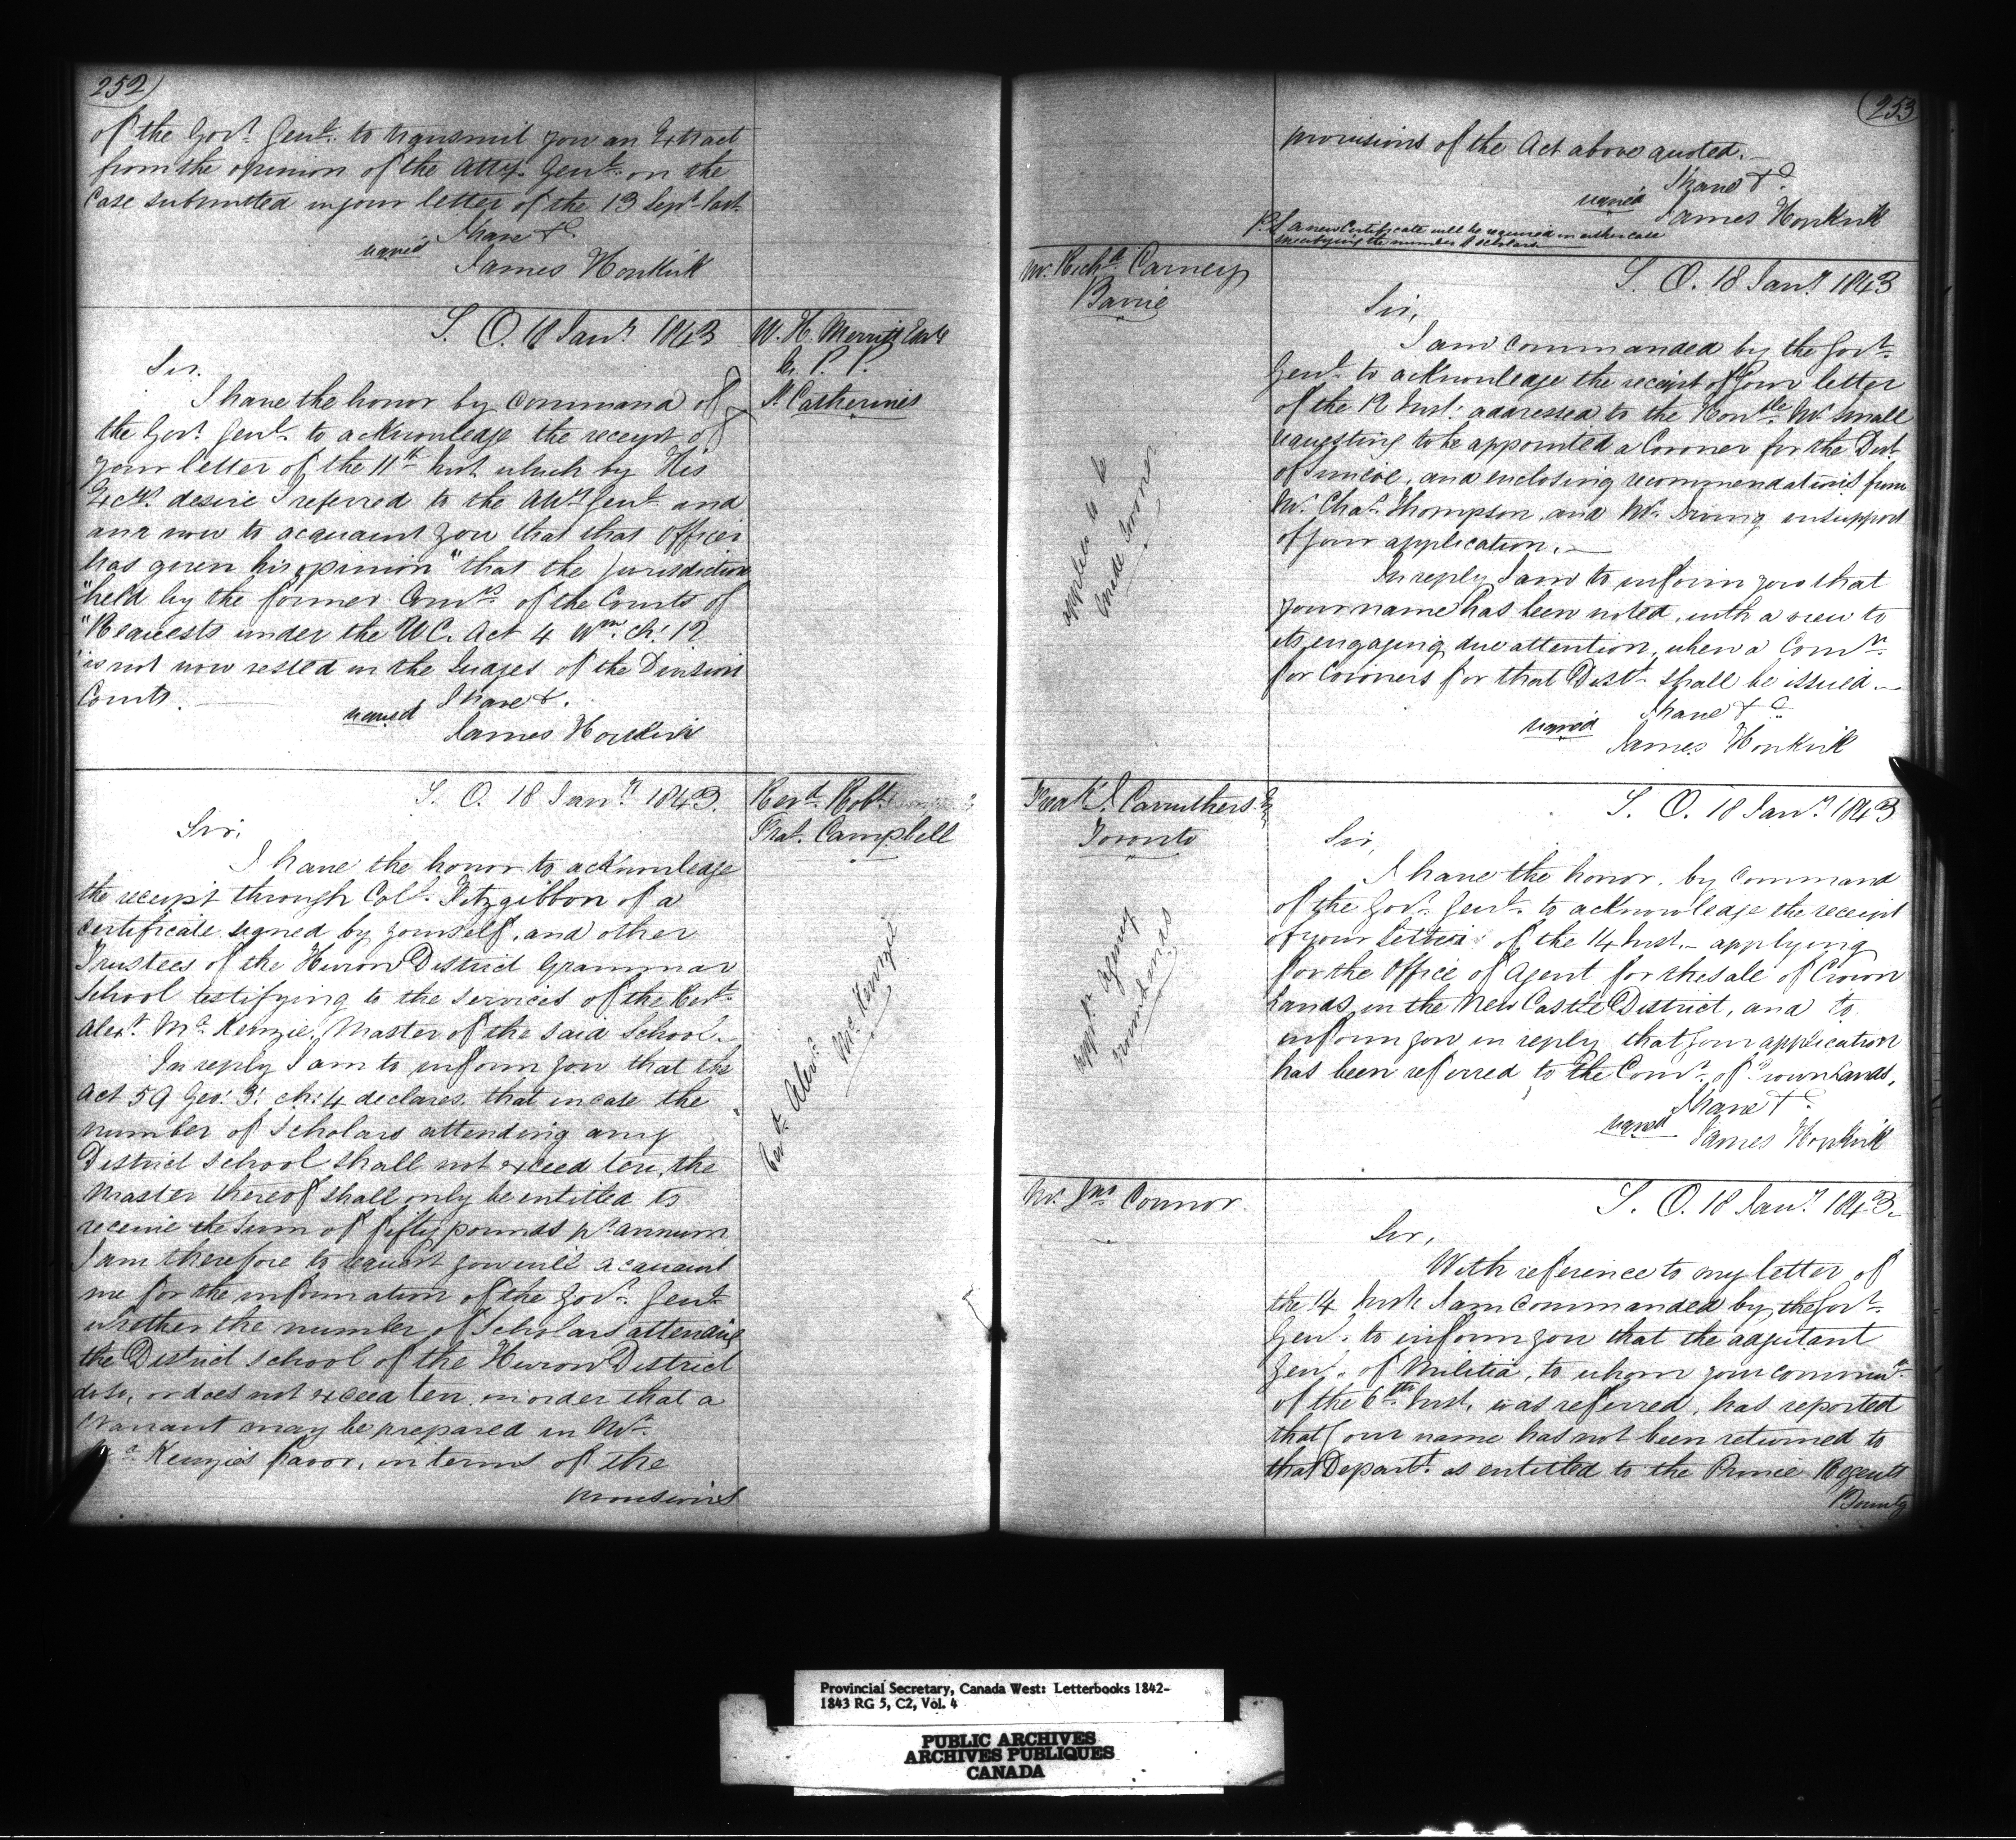 252
of the Govr. Genl. to transmit you an Extract
from the opinion of the Atty. Genl. on the
Case submitted in your letter of the 13 Sept. last.
I have &c.
signed
James Hopkirk
S. O. 18 Jany. 1843
W. H. Merritt Esqre
M. P. P.
St. Catherines
Sir.
I have the honor by Command of
the Govr. Genl. to acknowledge the receipt of
your letter of the 11th Inst. which by His
Excys. desire I referred to the Atty. Genl. and
am now to acquaint you that that Officer
has given his opinion "that the jurisdiction
"held by the former Comrs. of the Courts of
"Requests under the U.C. Act 4 Wm. ch: 12
"is not now vested in the Judges of the Division
Courts.
I have &.
signed
James Hopkirk
S. O. 18 Jany. 1843.
Revd. Robt.
Frat. Campbell
Sir,
I have the honor to acknowledge
the receipt through Coll. Fitzgibbon of a
certificate signed by yourself, and other
Trustees of the Huron District Grammar
School testifying to the services of the Revd.
Alexr. Mc.Kenzie, Master of the said School.
Revd. Alexr.
McKenzie
In reply I am to inform you that the
Act 59 Geo: 3: ch: 4 declares that incase the
number of Scholars attending any
District School shall not exceed ten, the
Master thereof shall only be entitled to
receive the Sum of fifty pounds pr. annum
I am therefore to request you will acquaint
me for the information of the Govr. Genl.
whether the number of Scholars attending
the District School of the Huron District
does, or does not exceed ten, in order that a
Warrant may be prepared in Mr.
Mc. Kenzie's favor, in terms of the
provisions
253
provisions of the Act above quoted.
I have &c
signed
James Hopkirk
P.S. a new Certificate will be required in either case
specifying the number of scholars.
Mr. Richd. Carney
Barrie
S. O. 18 Jany. 1843
Sir,
I am Commanded by the Govr.
Genl. to acknowledge the receipt of your letter
of the 12 Inst: addressed to the Honble. Mr Small
requesting to be appointed a Coroner for the Dist.
of Simcoe, and enclosing recommendations from
Mr. Chas. Thompson, and Mr. Irving in support
of your application.
applies to be
made Coroner
In reply I am to inform you that
your name has been noted, with a view to
its engaging due attention, when a Comn.
for Coroners for that Distt. shall be issued.
I have &c
signed
James Hopkirk
Fredk. J. Carruthers Esq
Toronto
S. O. 18 Jany. 1843
Sir,
I have the honor, by Command
of the Govr. Genl. to acknowledge the receipt
of your Letter of the 14 Inst. applying
for the Office of Agent for the sale of Crown
Lands, in the New Castle District, and to
inform you in reply, that your application
has been referred to the Comr. of Crown Lands,
I have &c.
signed
James Hopkirk
Mr. Jno Connor
S. O. 18 Jany. 1843.
Sir,
With reference to my letter of
the 14 Inst. I am Commanded by the Govr.
Genl. to inform you that the adjutant
Genl. of Militia, to whom your communn.
of the 6th. Inst. was referred, has reported
that your name has not been returned to
that Depart. as entitled to the Prince Regents
Bounty
Provincial Secretary, Canada West: Letterbooks 1842-
1843 RG 5, C2, Vol. 4
PUBLIC ARCHIVES
ARCHIVES PUBLIQUES
CANADA